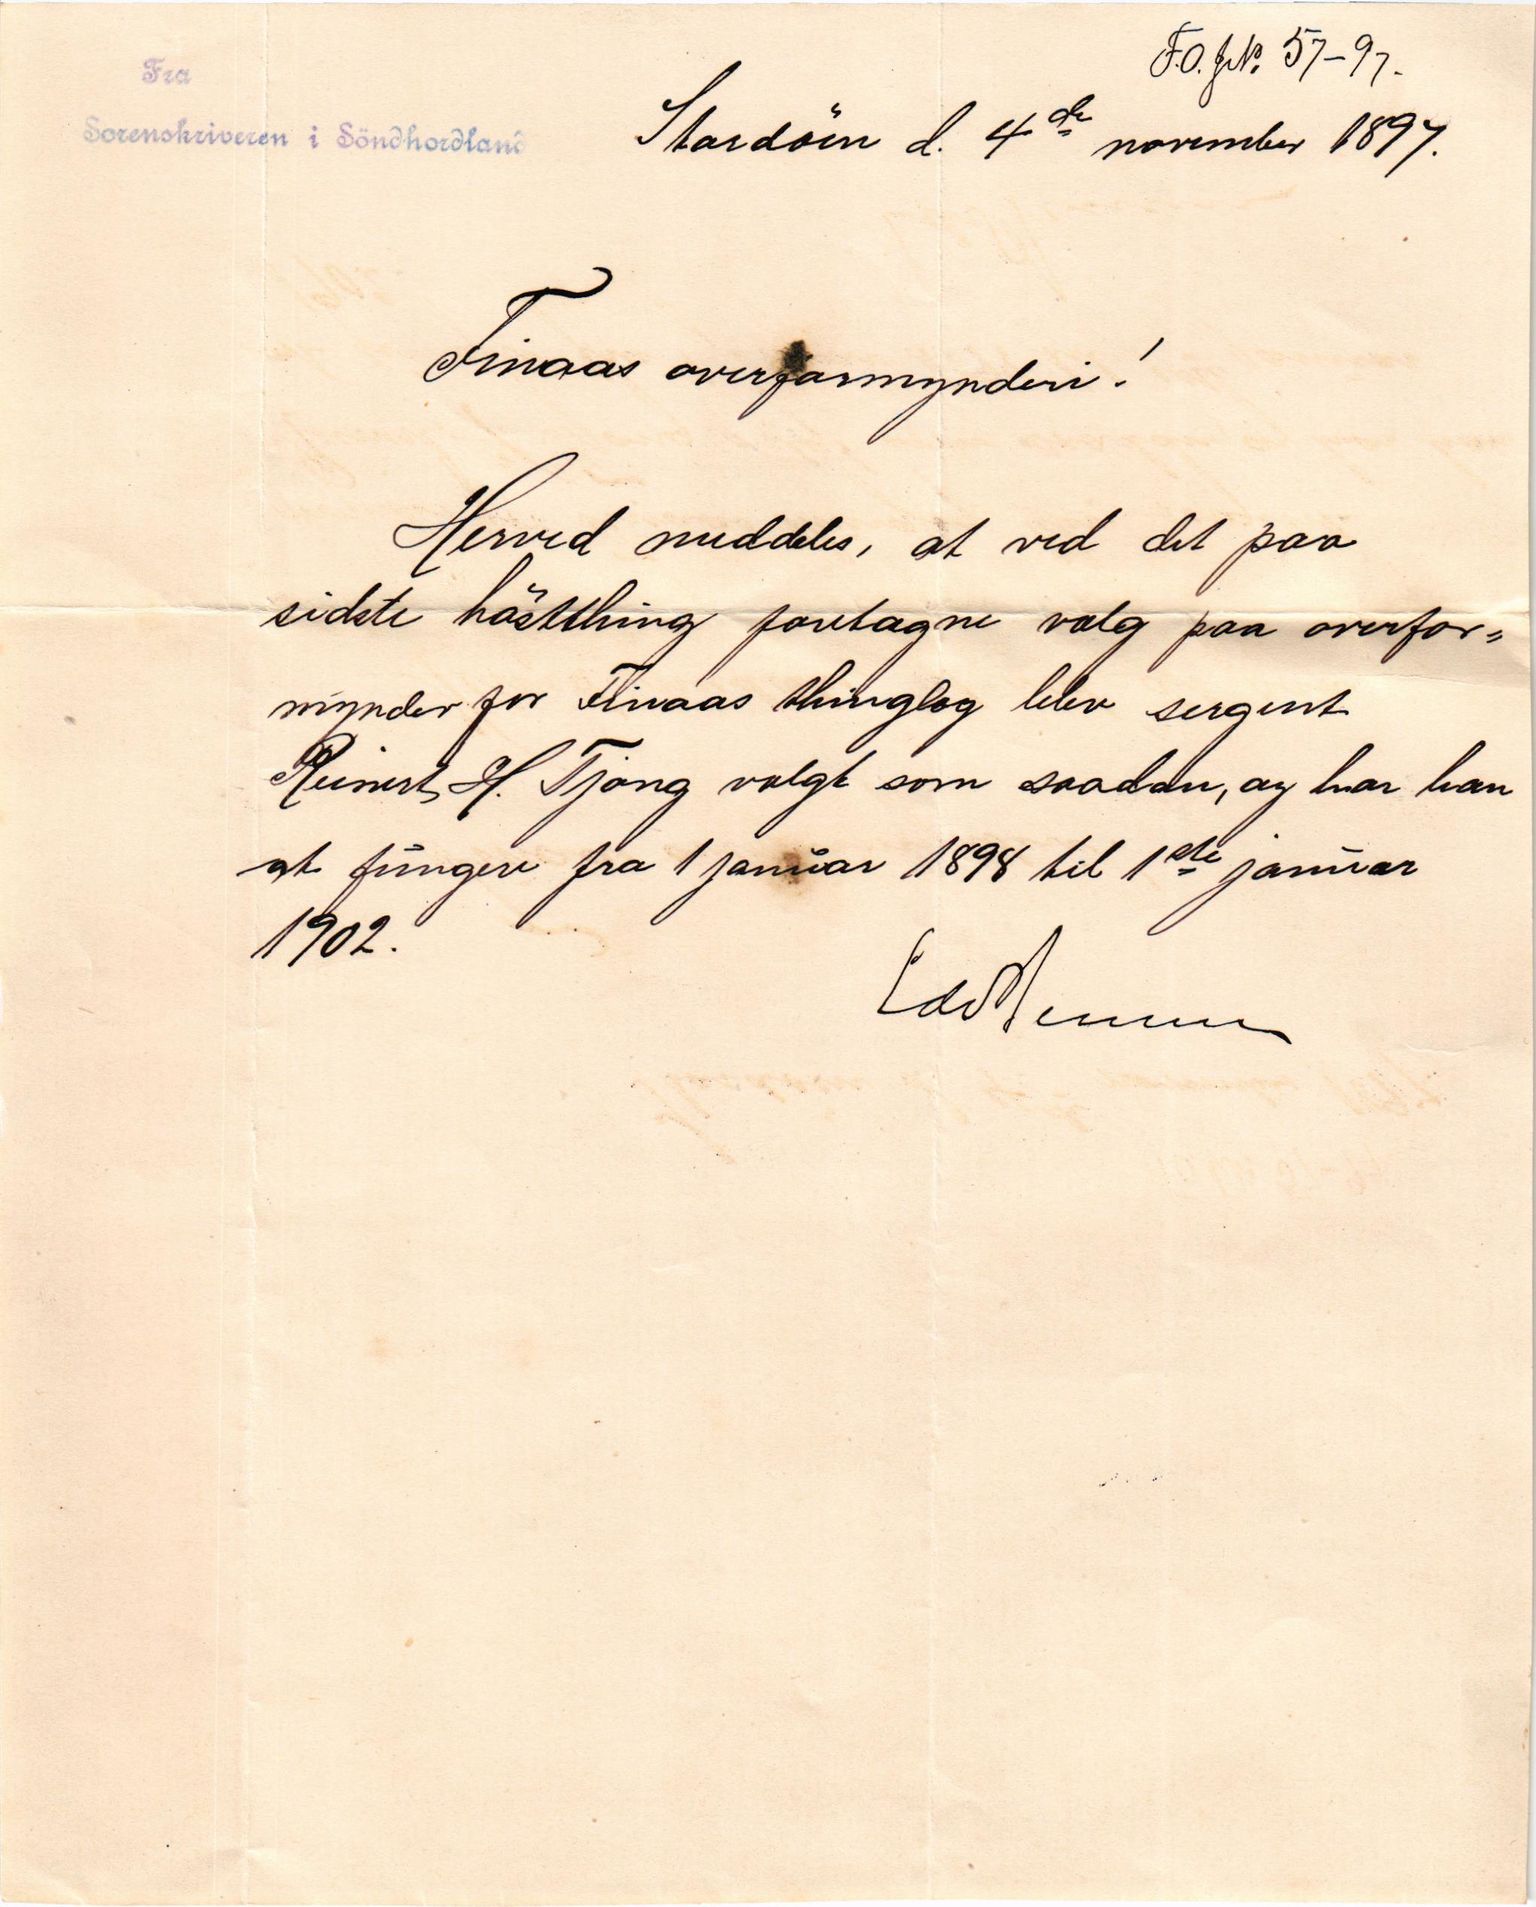 F.O. J.No. 57-97.
Fra
Sorenskriveren i Söndhordland
Stordöen d. 4de november 1897.
Finaas overformynderi!
Herved meddeles, at ved det paa
sidste höstthing foretagne valg paa overfor=
mynder for Finaas thinglag blev sergent
Reinert H. Tjong valgt som saadan, og har han
at fungere fra 1 januar 1898 til 1ste januar
1902.